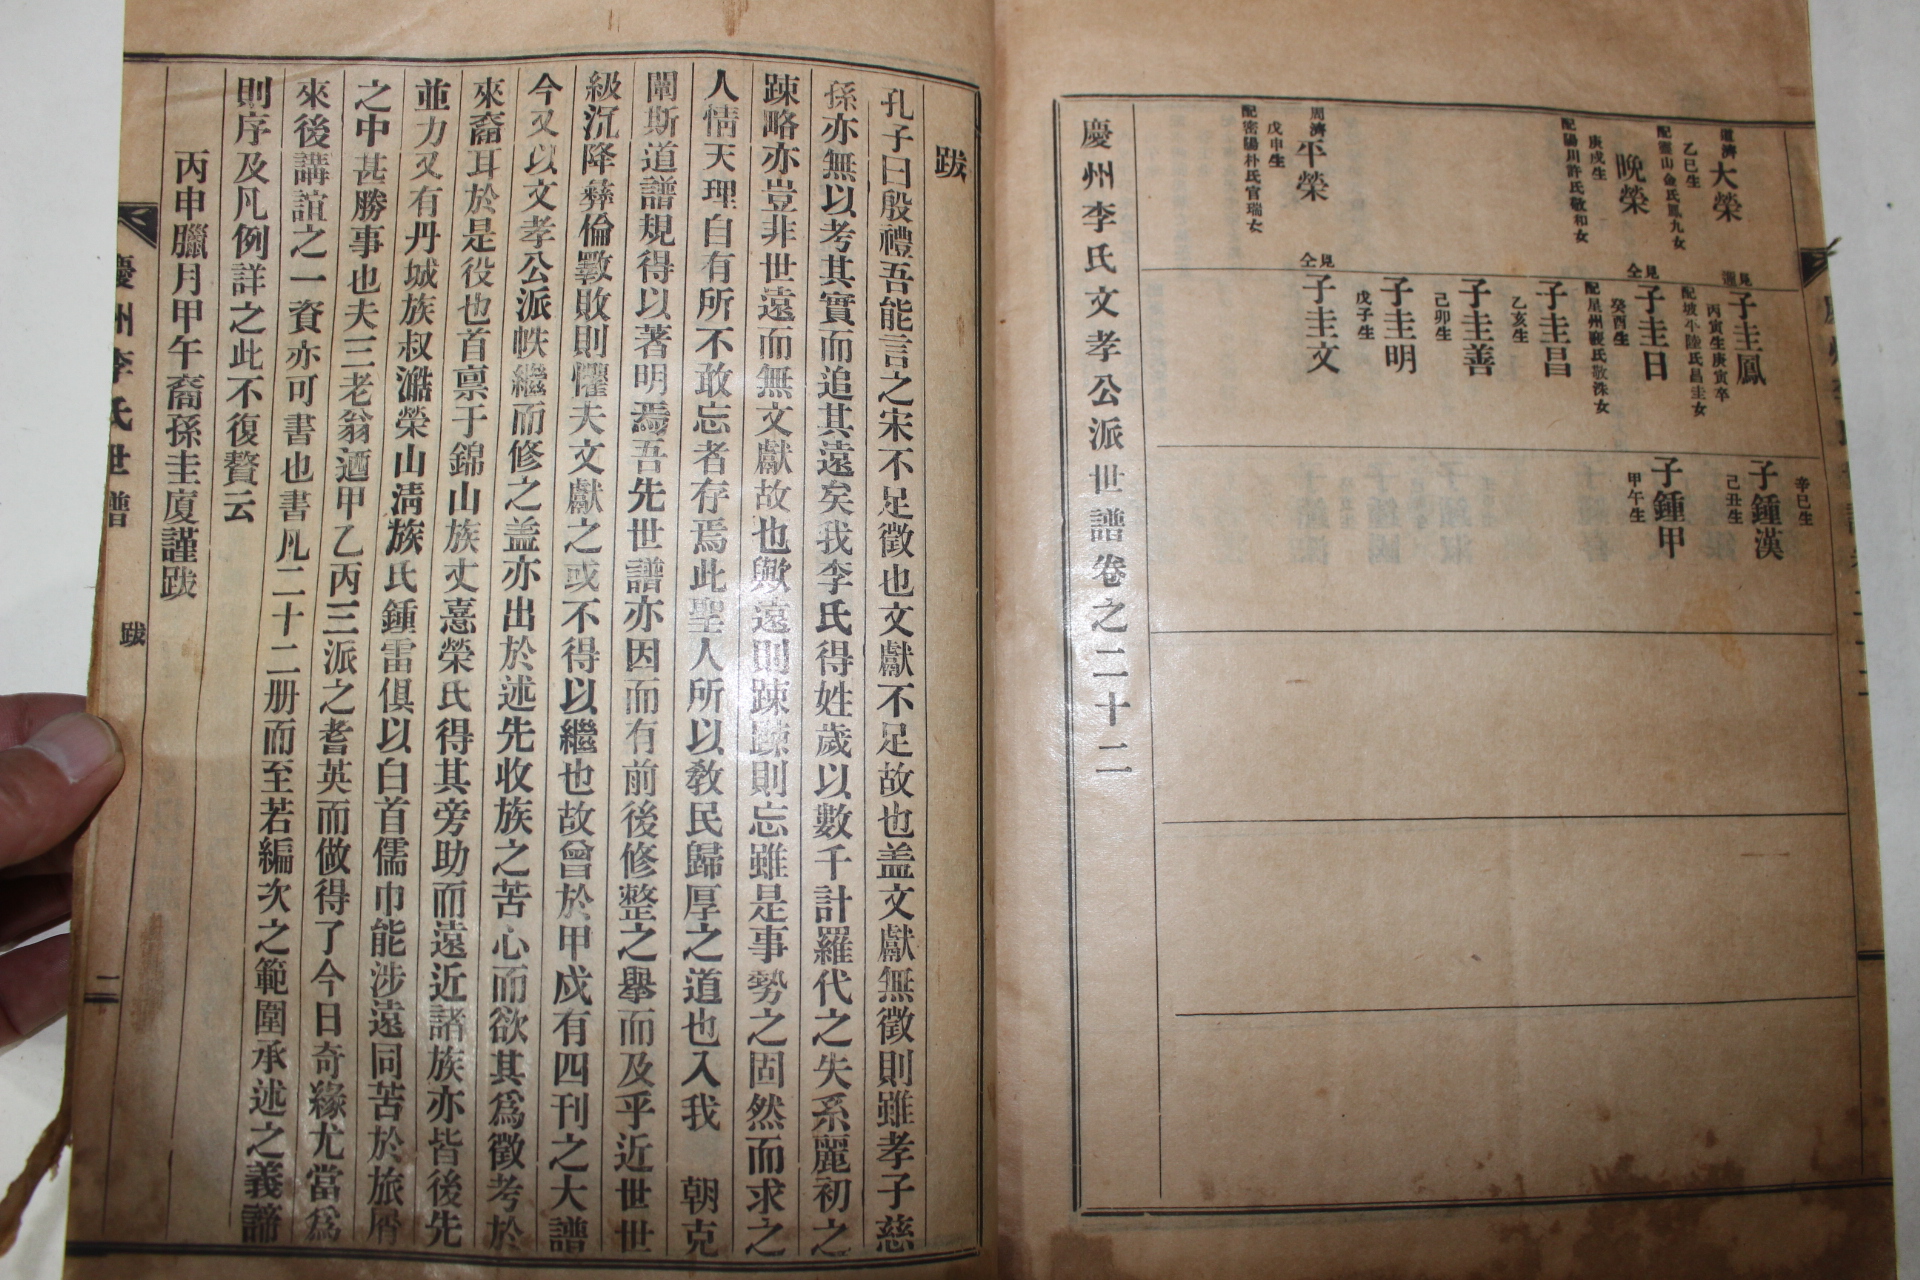 道濟
大榮
乙巳生
配靈山金氏鳳九女
晩榮
庚戌生
配陽川許氏敬和女
周濟
平榮
戊申生
配密陽朴氏官瑞女
見
子圭鳳
丙寅生庚寅卒
配坡平陸氏昌圭女
見仝
子圭日
癸酉生
配星州裵氏敬洙女
子圭昌
乙亥生
子圭善
己卯生
子圭明
戊子生
見仝
子圭文
辛巳生
子鍾漢
己丑生
子鍾甲
甲午生
慶州李氏文孝公派世譜卷之二十二
跋
孔子曰殷禮吾能言之宋不足徵也文獻不足故也盖文獻無徵則雖孝子慈
孫亦無以考其實而追其遠矣我李氏得姓歲以數千計羅代之失系麗初之
踈略亦豈非世遠而無文獻故也歟遠則踈踈則忘雖是事勢之固然而求之
人情天理自有所不敢忘者存焉此聖人所以敎民歸厚之道也入我 朝克
闡斯道譜規得以著明焉吾先世譜亦因而有前後修整之擧而及乎近世世
級沉降彜倫斁敗則懼夫文獻之或不得以繼也故曾於甲戌有四刊之大譜
今又以文孝公派帙繼而修之盖亦出於述先收族之苦心而欲其爲徵考於
來裔耳於是役也首禀于錦山族丈憙榮氏得其旁助而遠近諸族亦皆後先
並力又有丹城族叔澔榮山淸族氏鍾雷俱以白首儒巾能涉遠同苦於旅屑
之中甚勝事也夫三老翁迺甲乙丙三派之耆英而做得了今日奇緣尤當爲
來後講誼之一資亦可書也書凡二十二册而至若編次之範圍承述之義諦
則序及凡例詳之此不復贅云
丙申臘月甲午裔孫圭厦謹跋
慶州李氏世譜
跋
一